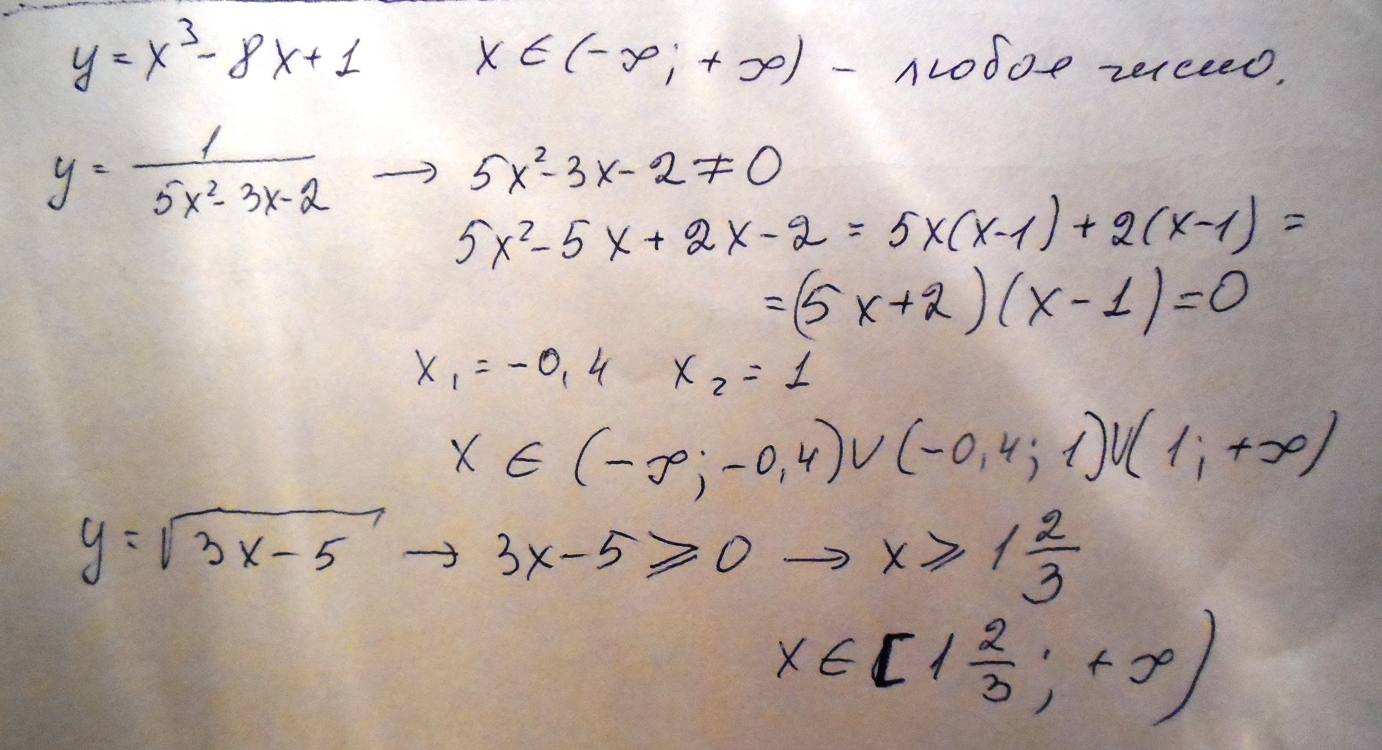 y = x³ - 8x + 1 x ∈ (-∞; +∞) - любое число.
y = 1/(5x² - 3x - 2) → 5x² - 3x - 2 ≠ 0
5x² - 5x + 2x - 2 = 5x(x-1) + 2(x-1) =
= (5x+2)(x-1) = 0
x₁ = -0,4 x₂ = 1
x ∈ (-∞; -0,4) ∪ (-0,4; 1) ∪ (1; +∞)
y = √(3x - 5) → 3x - 5 ⩾ 0 → x ⩾ 1 2/3
x ∈ [1 2/3; +∞)